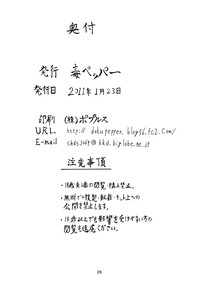 奥付
発行 毒ペッパー
発行日 2011年1月23日
印刷 (株)ポプルス
URL. http://dokupepper.blog56.fc2.com/
E-mail
注意事項
・18歳未満の閲覧・購入禁止。
・無断での複製・転載・ネット上への
公開を禁止します。
・18歳以上でも影響を受けやすい方の
閲覧も遠慮ください。